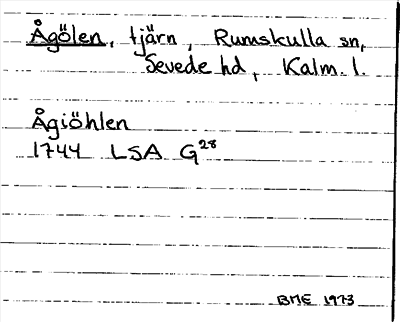 Ågölen, tjärn, Rumskulla sn,
Sevede hd, Kalm. l.
Ågiöhlen
1744 LSA G28
BME 1973